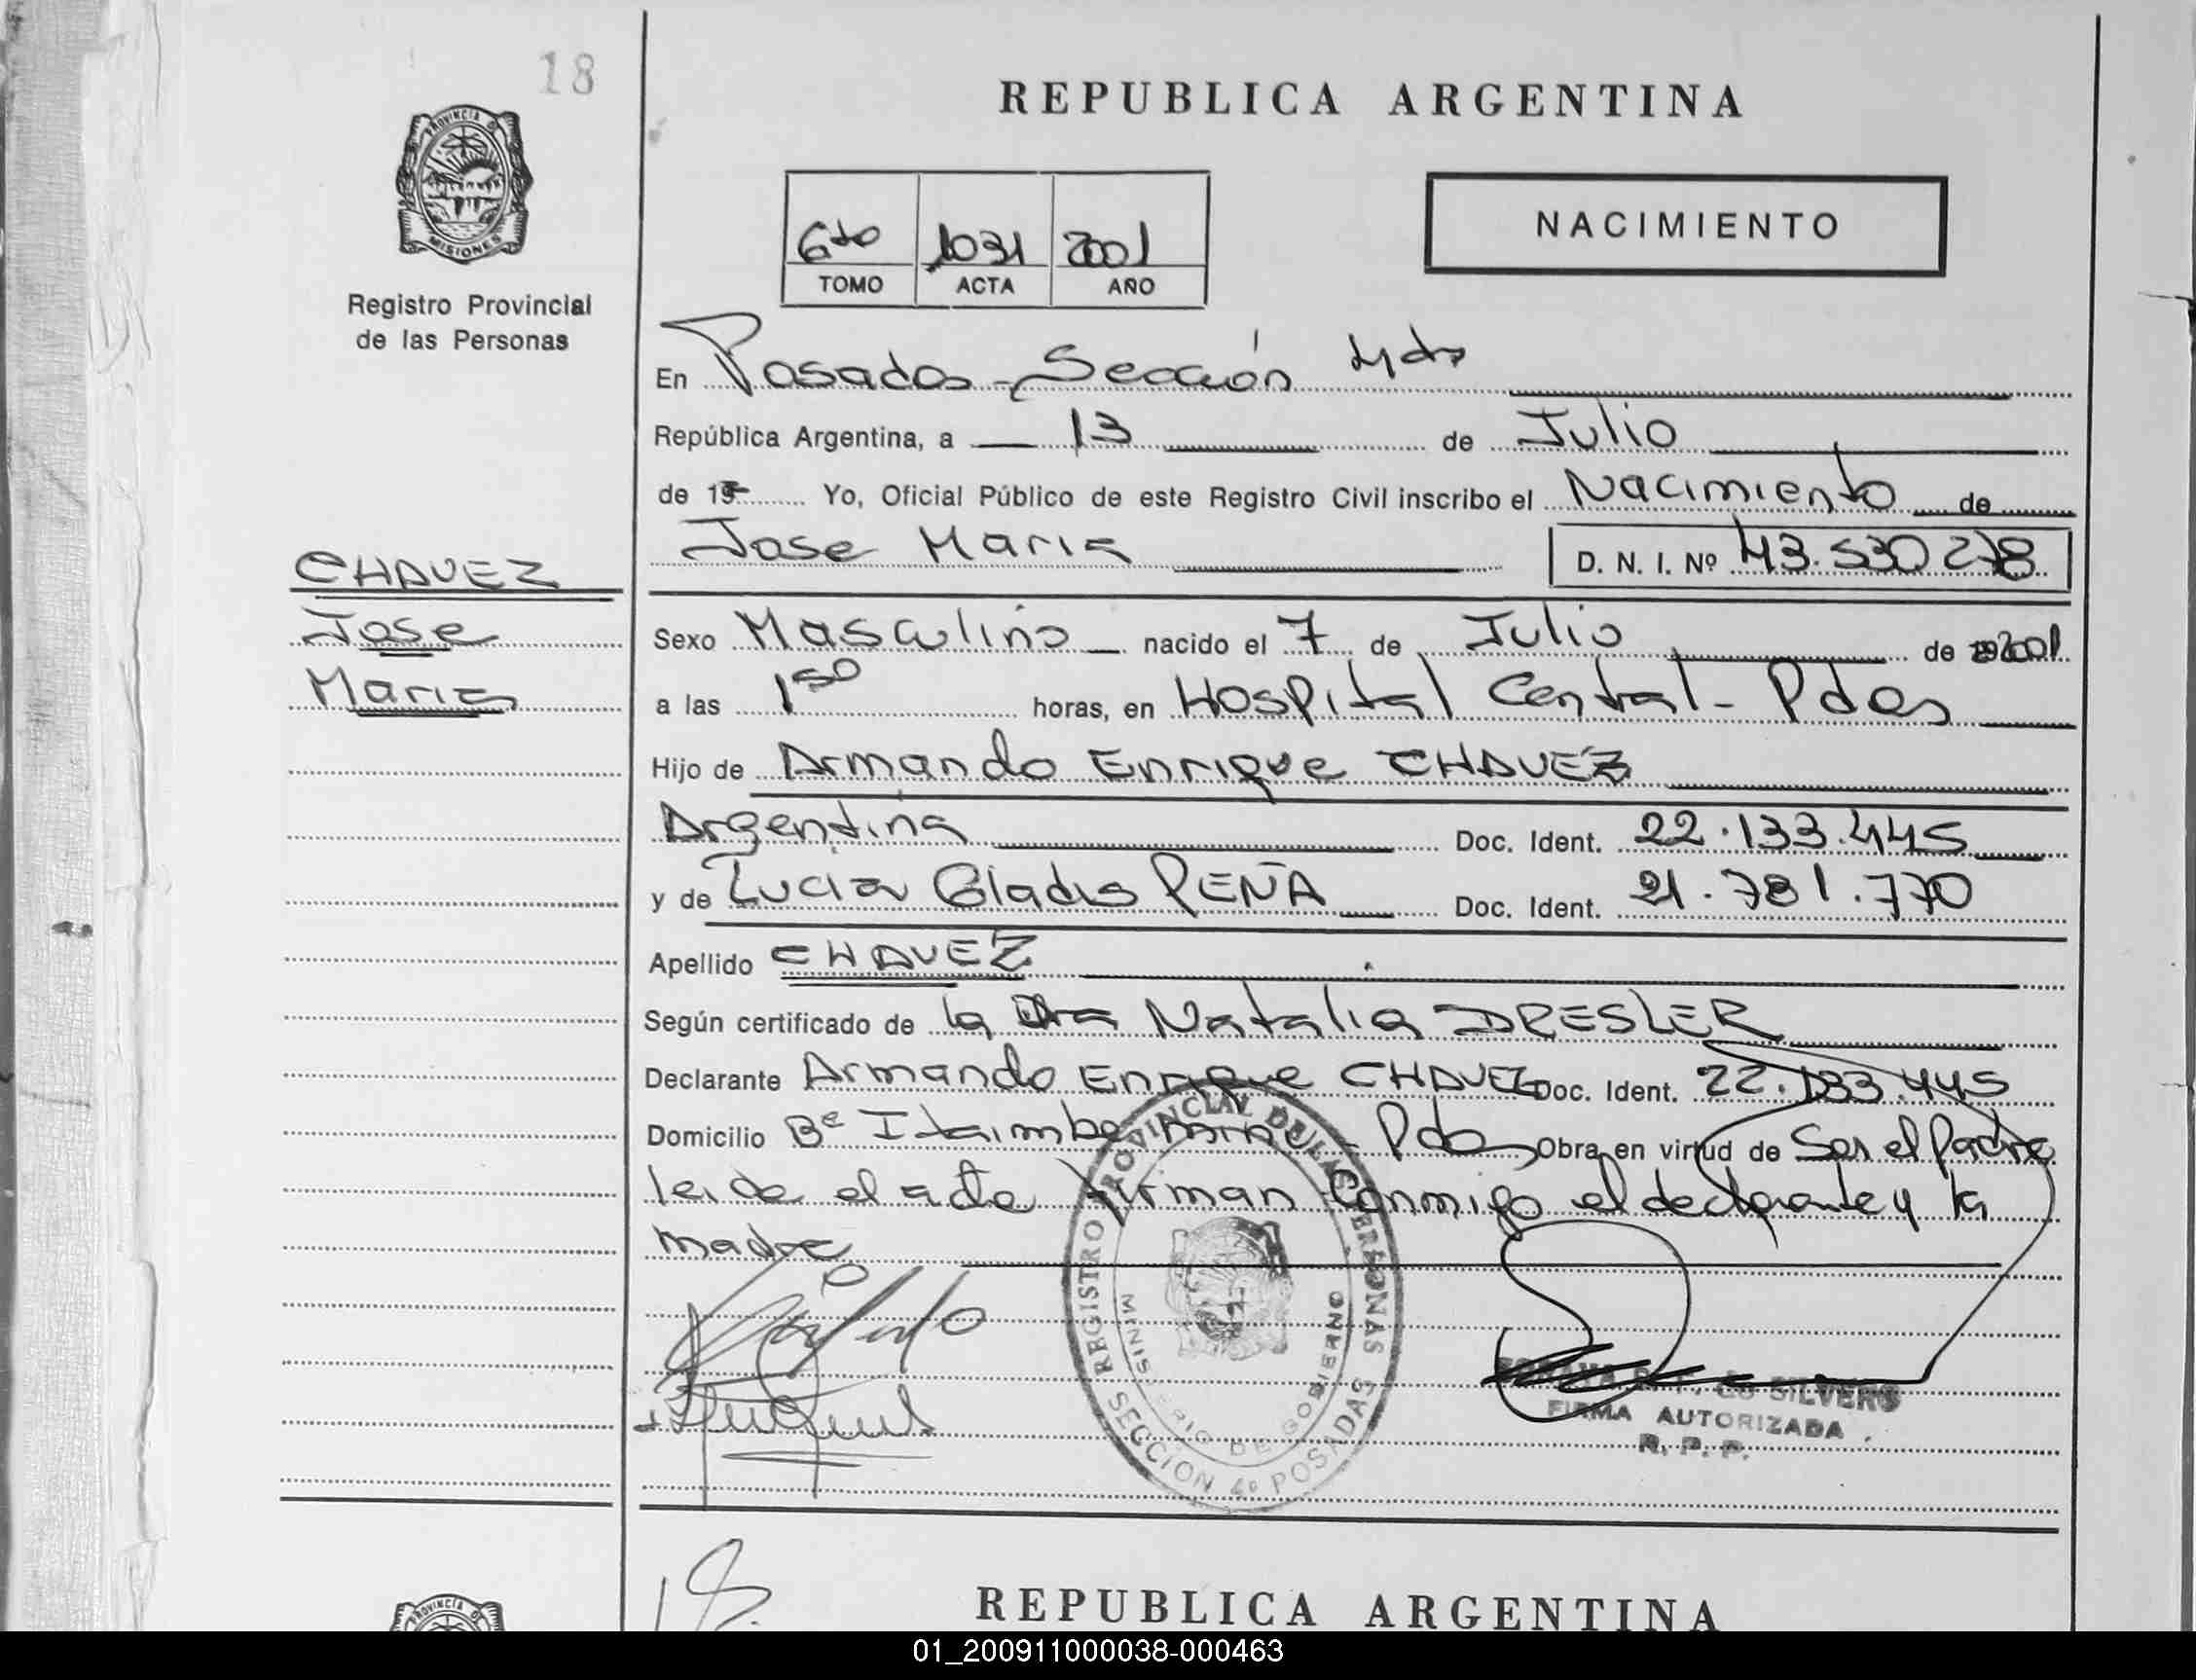 18
PROVINCIA D
MISIONES
Registro Provincial
de las Personas
CHAVEZ
Jose
Maria
REPUBLICA ARGENTINA
6to 1031 2001
TOMO ACTA AÑO
NACIMIENTO
En Posadas - Sección 4ta
República Argentina, a 13 de Julio
de 19 Yo, Oficial Público de este Registro Civil inscribo el Nacimiento de
Jose Maria D. N. I. Nº 43.530278
Sexo Masculino nacido el 7 de Julio de 2001
a las 1⁵⁰ horas, en Hospital Central - Pdas
Hijo de Armando Enrique CHAVEZ
Argentina Doc. Ident. 22.133.445
y de Lucia Gladis PEÑA Doc. Ident. 21.781.770
Apellido CHAVEZ
Según certificado de la Dra Natalia DRESLER
Declarante Armando Enrique CHAVEZ Doc. Ident. 22.133.445
Domicilio Bº Itaimbe Mini - Pdas Obra en virtud de Ser el Padre
leida el acta firman conmigo el declarante y la
madre
REGISTRO PROVINCIAL DE LAS PERSONAS
MINISTERIO DE GOBIERNO
SECCION 4º POSADAS
de SILVERO
FIRMA AUTORIZADA
R. P. P.
18.
PROVINCIA
REPUBLICA ARGENTINA
01_200911000038-000463